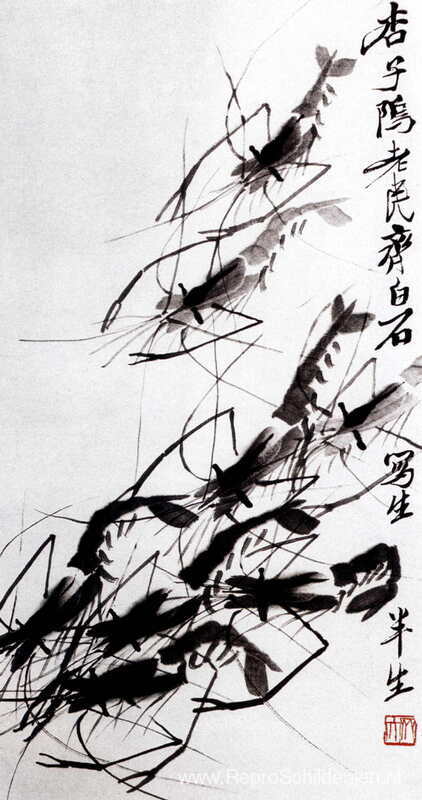 杏子隖老民齊白石
寫生
半生
www.ReproSchilderijen.nl